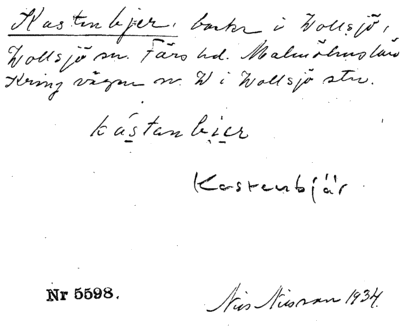 Kastenbjer, backe i Vollsjö,
Vollsjö sn. Färs hd. Malmöhus län
Kring vägen v. V i Vollsjö stn.
kástanbjer
Kastenbjär
Nr 5598.
Nils Nilsson 1934.